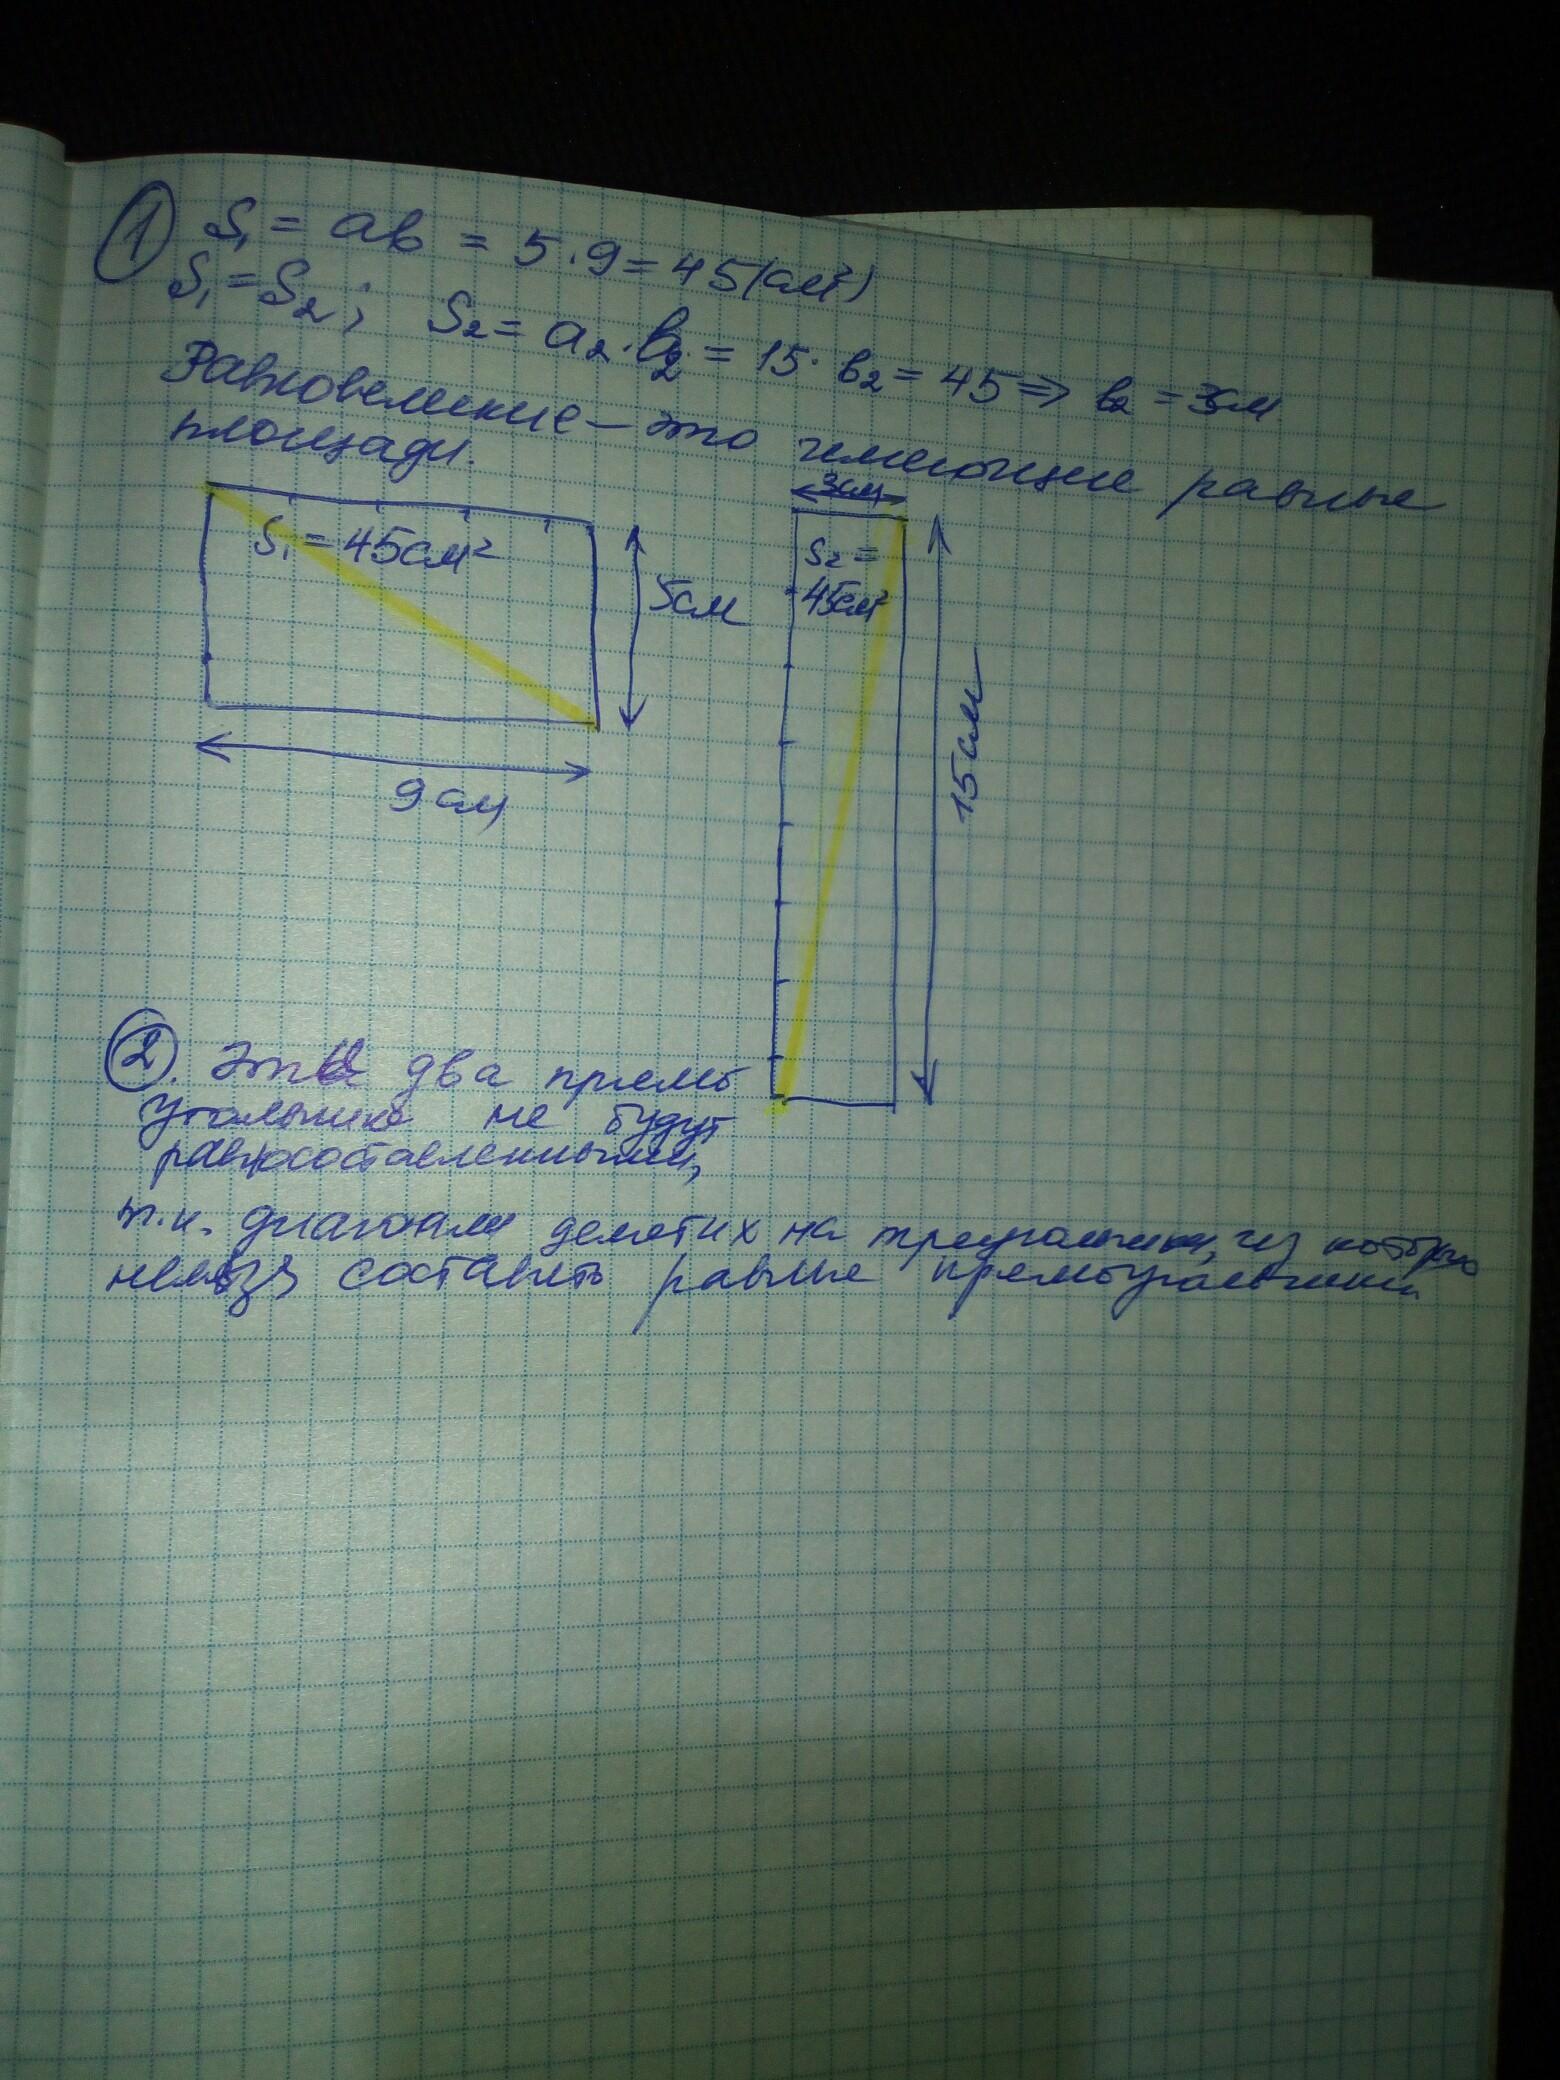 1 S₁ = ab = 5·9 = 45 (см²)
S₁ = S₂; S₂ = a₂·b₂ = 15·b₂ = 45 => b₂ = 3см
Равновеликие — это имеющие равные
площади.
3см
S₁ = 45см²
S₂ =
45см²
5см
15см
9см
2. Эти два прямо
угольника не будут
равносоставленными,
т.к. диагонали делят их на треугольники, из которых
нельзя составить равные прямоугольники